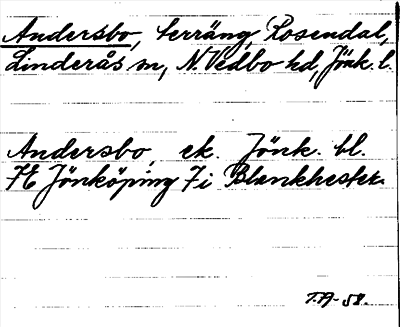 Andersbo, terräng, Rosendal,
Linderås sn, N. Vedbo hd, Jönk. l.
Andersbo ek. Jönk. bl.
7E Jönköping 7i Blankhester.
T.A-58.